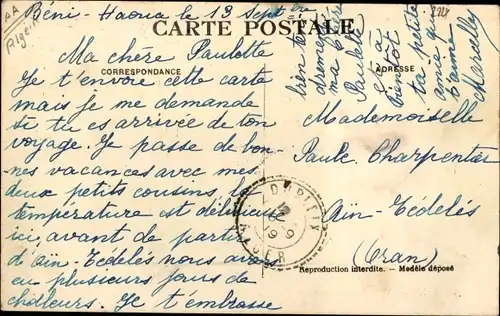 Béni-Haoua le 13 Septbre
CARTE POSTALE
CORRESPONDANCE
ADRESSE
Ma chère Paulette
Je t'envoie cette carte
mais je me demande
si tu es arrivée de ton
voyage. Je passe de bon-
nes vacances avec mes
deux petits cousins, la
température est délicieuse
ici, avant de partir
d'Aïn-Tédelès nous avons
eu plusieurs jours de
chaleurs. Je t'embrasse
bien
ma
Paulette
à
bientôt
ta petite
amie qui
t'aime
Marcelle
Mademoiselle
Paule Charpentier
Aïn-Tédelès
(Oran)
DUPLEIX
ALGER
Reproduction interdite. — Modèle déposé
AA
Algérie